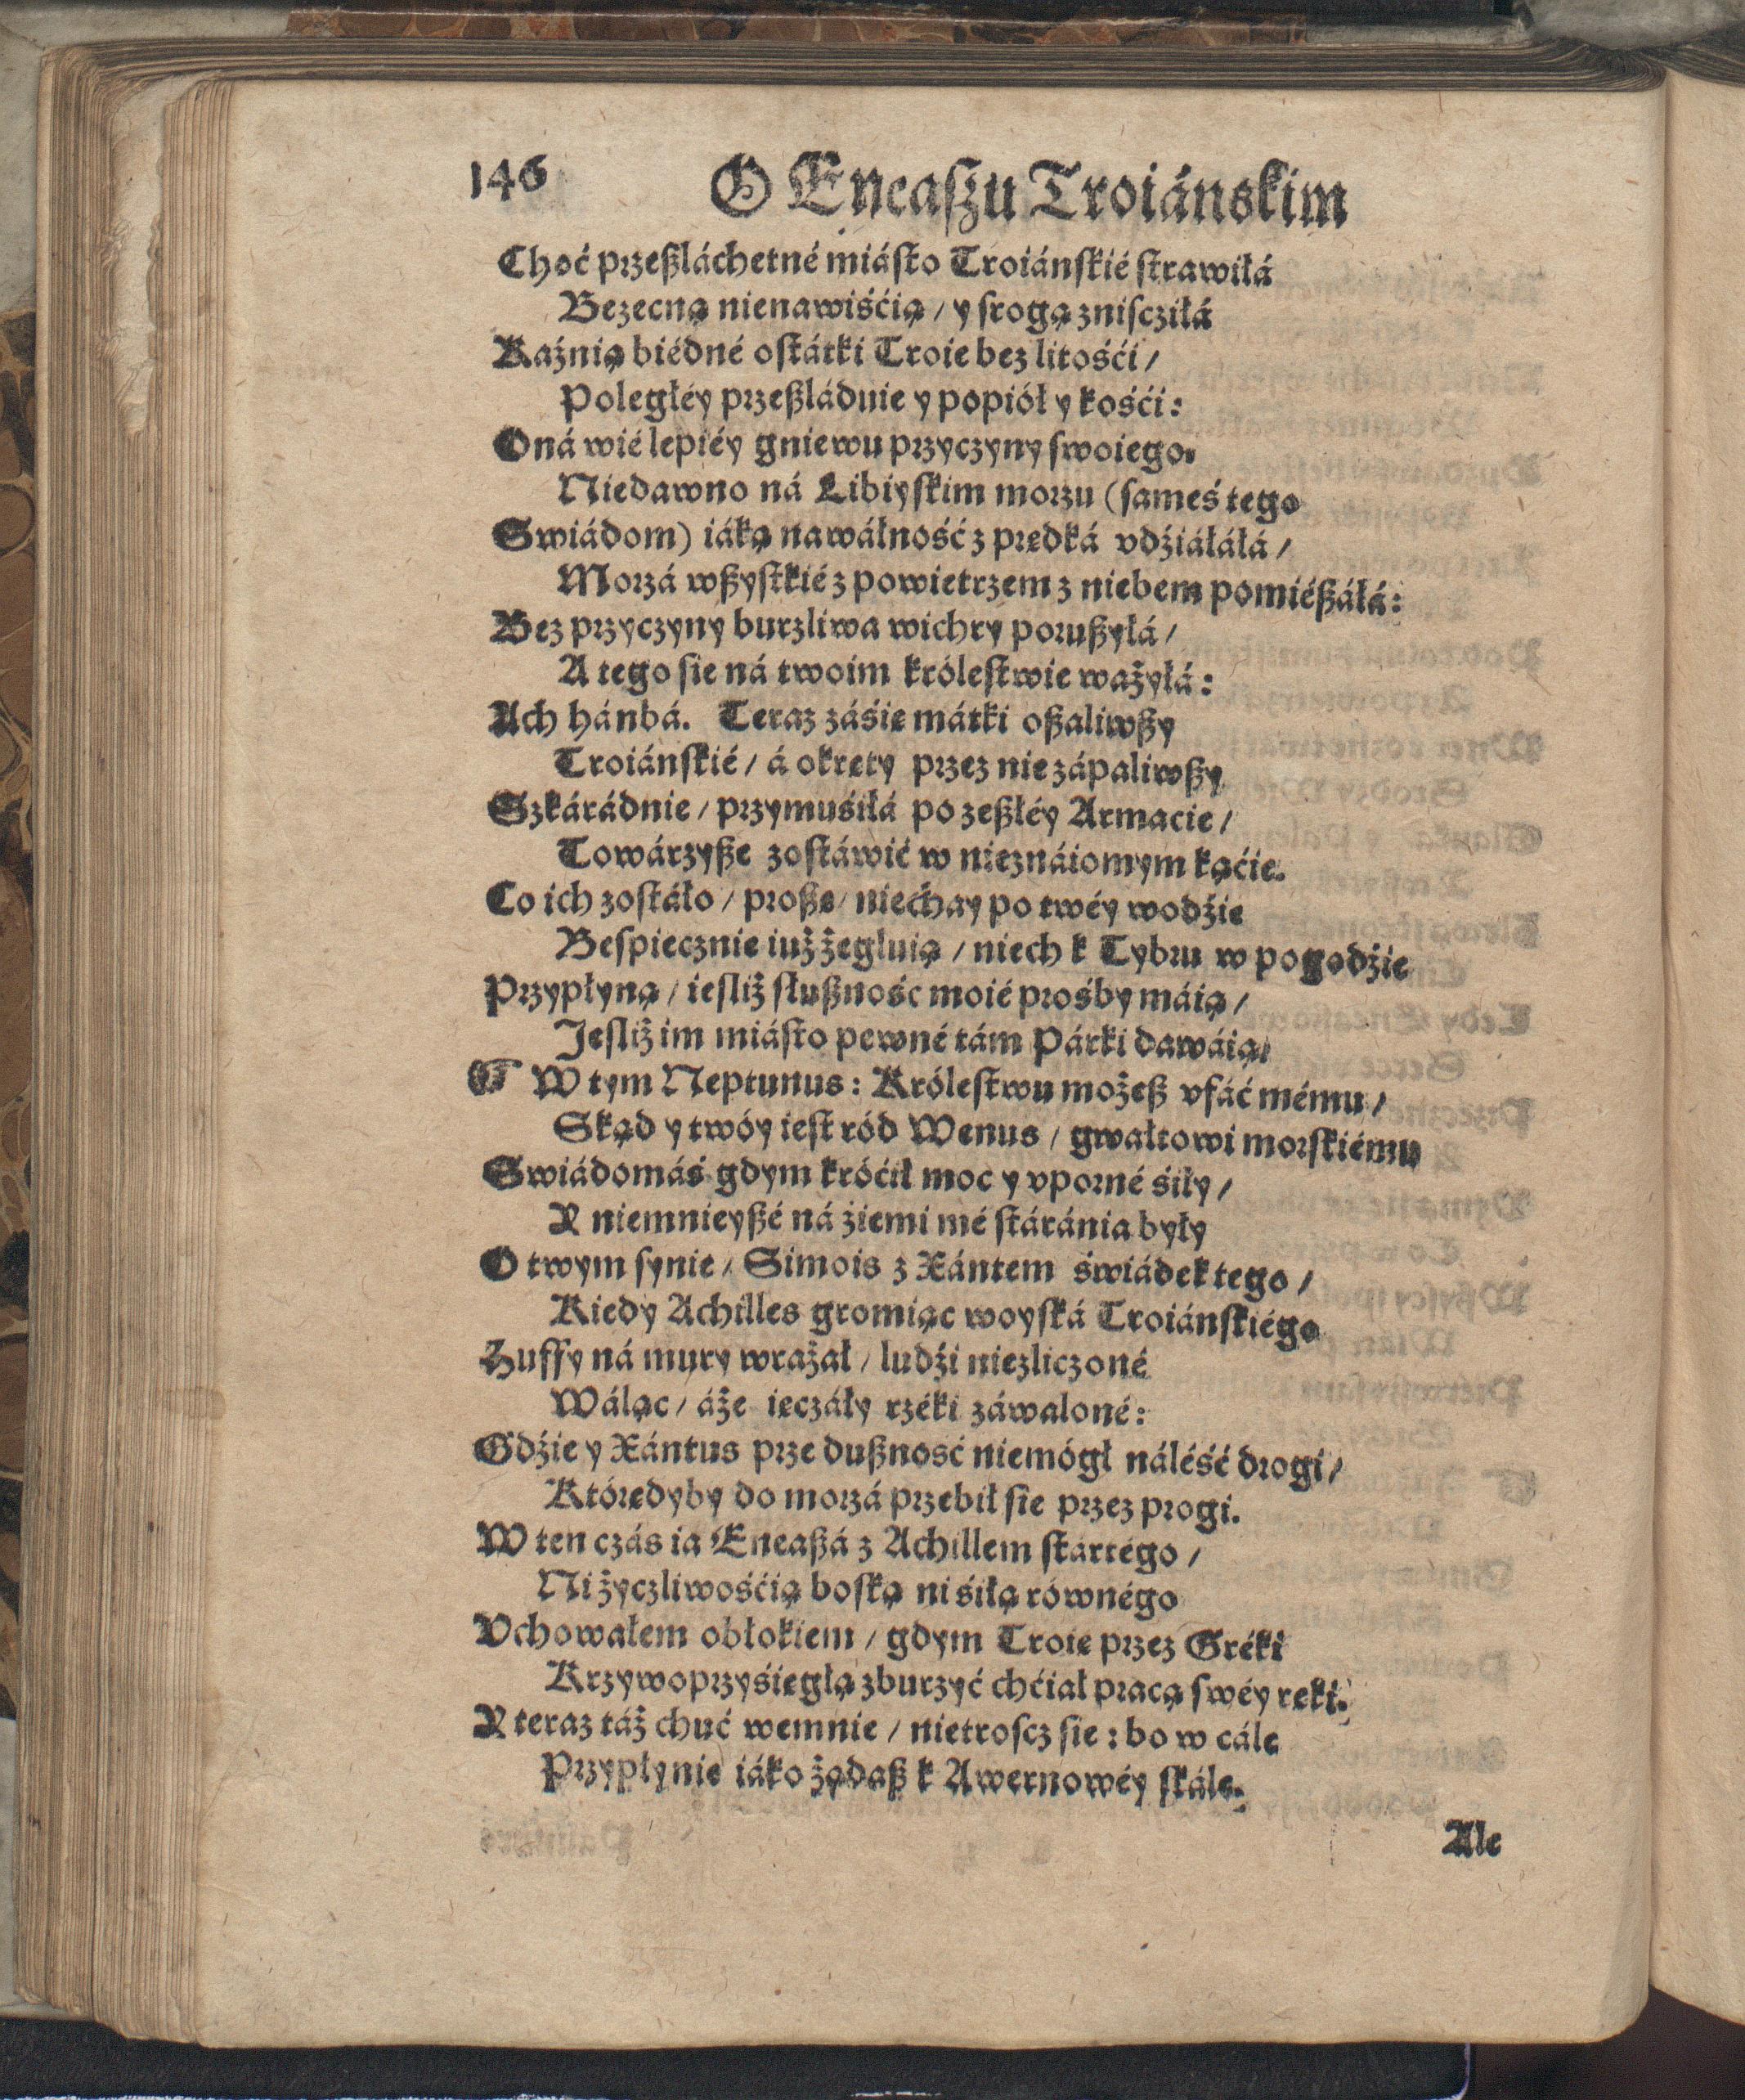 146 O Eneaſzu Troiánskim
Choć przeßláchetné miáſto Troiánſkié ſtrawiłá
Bezecną nienawiśćią / y ſrogą zniſcziłá
Kaźnią biédné oſtátki Troie bez litośći /
Poległéy przeßládnie y popiół y kośći:
Oná wié lepiéy gniewu przyczyny ſwoiego.
Niedawno ná Libiyſkim morzu (ſameś tego
Swiádom) iáką nawáłność z prędká vdźiáłáłá /
Morzá wßyſtkié z powietrzem z niebem pomiéßáłá:
Bez przyczyny burzliwa wichry porußyłá /
A tego ſie ná twoim króleſtwie ważyłá:
Ach hánbá. Teraz záśię mátki oßaliwßy
Troiánſkié / á okręty przez nie zápaliwßy
Szkárádnie / przymuśiłá po zeßłéy Armacie /
Towárzyße zoſtáwić w nieznáiomym kąćie.
Co ich zoſtáło / proßę / niechay po twéy wodźie
Beſpiecznie iuż żegluią / niech k Tybru w pogodźie
Przypłyną / ieſliż ſłußnośc moié prośby máią /
Jeſliż im miáſto pewné tám Párki dawáią.
☞ W tym Neptunus: Króleſtwu możeß vfáć mému /
Skąd y twóy ieſt ród Wenus / gwałtowi morſkiému
Swiádomáś gdym króćił moc y vporné śiły /
Y niemnieyßé ná źiemi mé ſtáránia były
O twym ſynie / Simois z Xántem świádek tego /
Kiedy Achilles gromiąc woyſká Troiánſkiégo
Huffy ná mury wrażał / ludźi niezliczoné
Wáląc / áże ięczáły rzéki záwaloné:
Gdźie y Xántus prze dußność niemógł náléść drogi /
Którędyby do morzá przebił ſie przez progi.
W ten czás ia Eneaßá z Achillem ſtartégo /
Ni życzliwośćią boſką ni śiłą równégo
Vchowałem obłokiem / gdym Troię przez Gréki
Krzywoprzyśięgłą zburzyć chćiał pracą ſwéy ręki.
Y teraz táż chuć wemnie / nietroſcz ſie: bo w cále
Przypłynie iáko żądaß k Awernowéy ſkále.
Ale